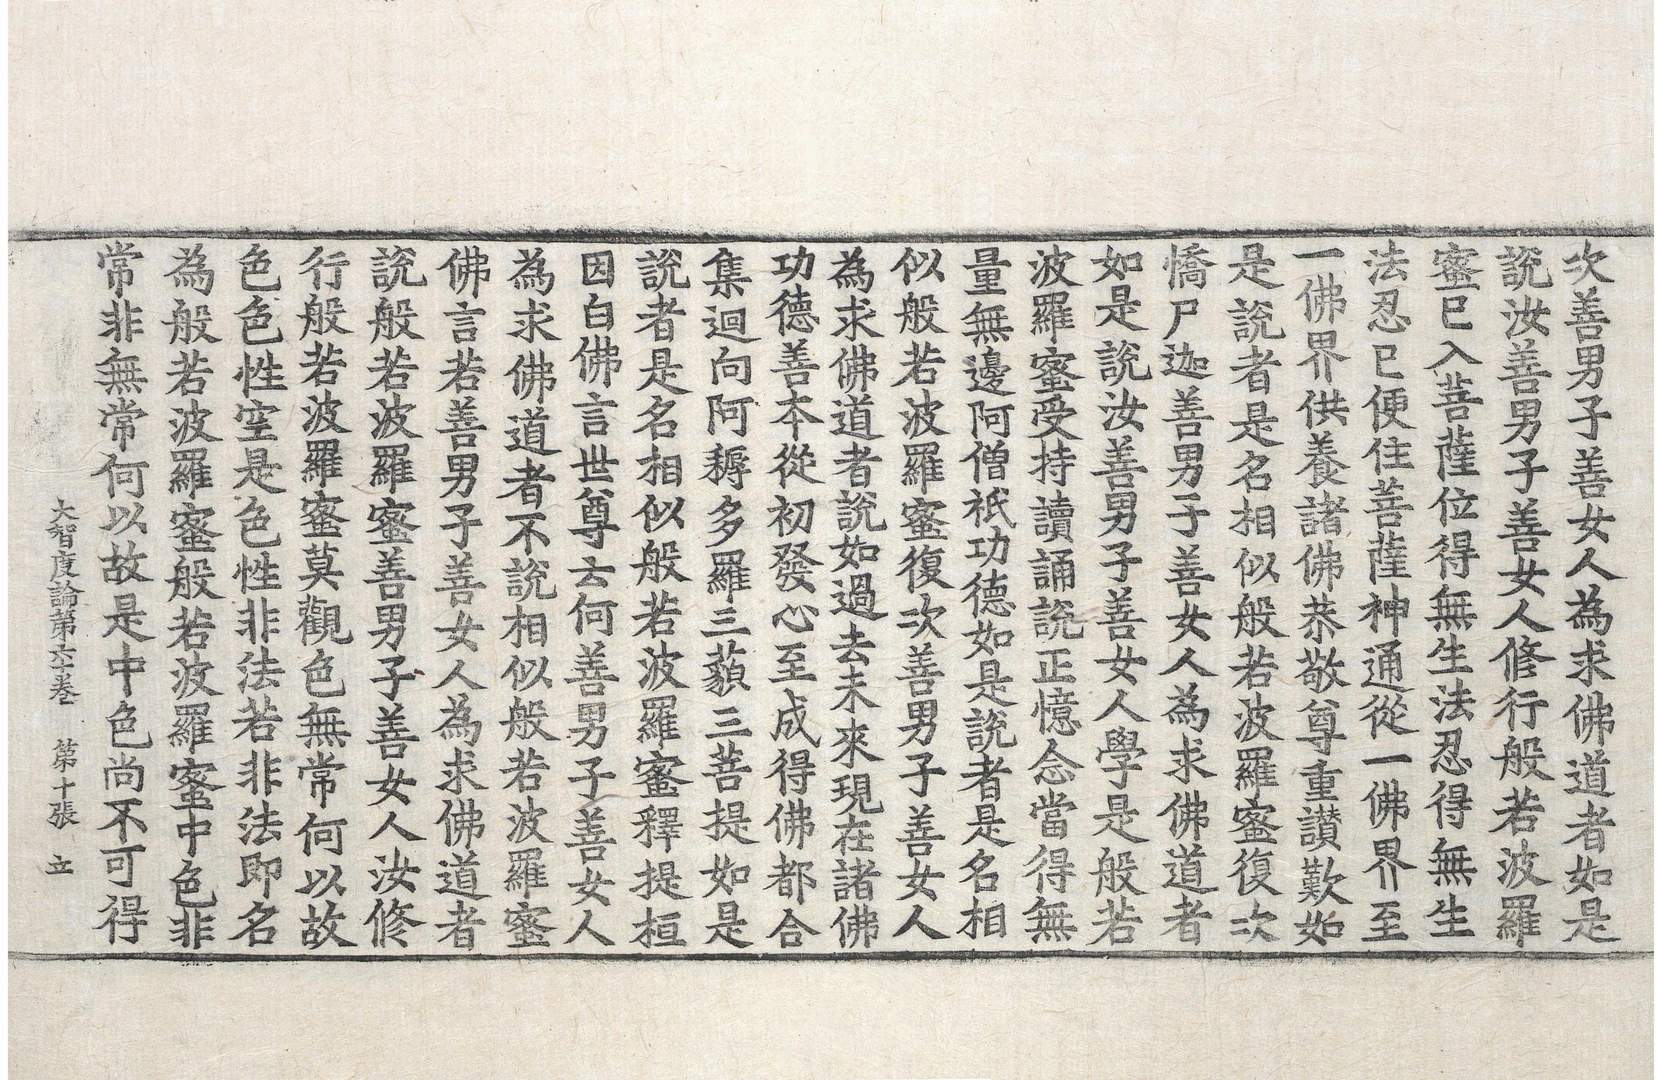 次善男子善女人為求佛道者如是
說汝善男子善女人修行般若波羅
蜜已入菩薩位得無生法忍得無生
法忍已便住菩薩神通從一佛界至
一佛界供養諸佛恭敬尊重讚歎如
是說者是名相似般若波羅蜜復次
憍尸迦善男子善女人為求佛道者
如是說汝善男子善女人學是般若
波羅蜜受持讀誦說正憶念當得無
量無邊阿僧祇功德如是說者是名相
似般若波羅蜜復次善男子善女人
為求佛道者說如過去未來現在諸佛
功德善本從初發心至成得佛都合
集迴向阿耨多羅三藐三菩提如是
說者是名相似般若波羅蜜釋提桓
因白佛言世尊云何善男子善女人
為求佛道者不說相似般若波羅蜜
佛言若善男子善女人為求佛道者
說般若波羅蜜善男子善女人汝修
行般若波羅蜜莫觀色無常何以故
色色性空是色性非法若非法即名
為般若波羅蜜般若波羅蜜中色非
常非無常何以故是中色尚不可得
大智度論第六卷 第十張 立